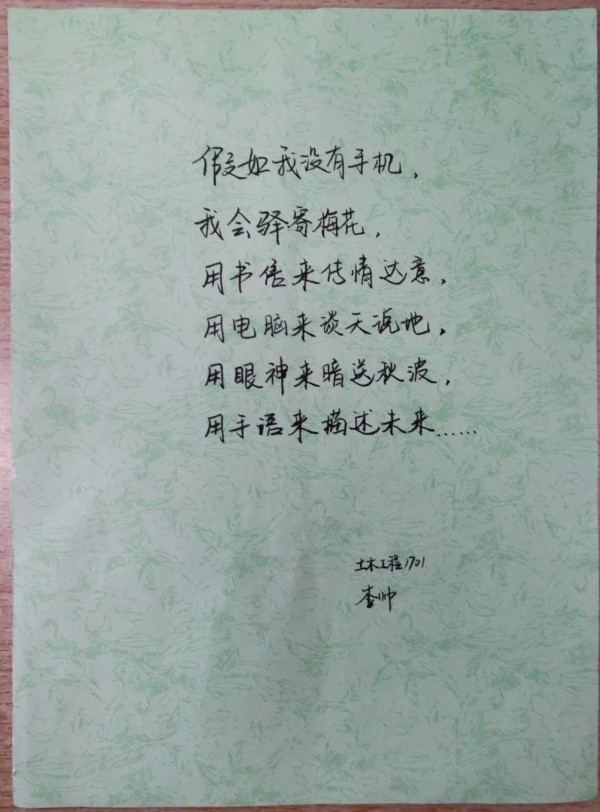 假如我没有手机，
我会驿寄梅花，
用书信来传情达意，
用电脑来谈天说地，
用眼神来暗送秋波，
用手语来描述未来……
土木工程1701
李帅